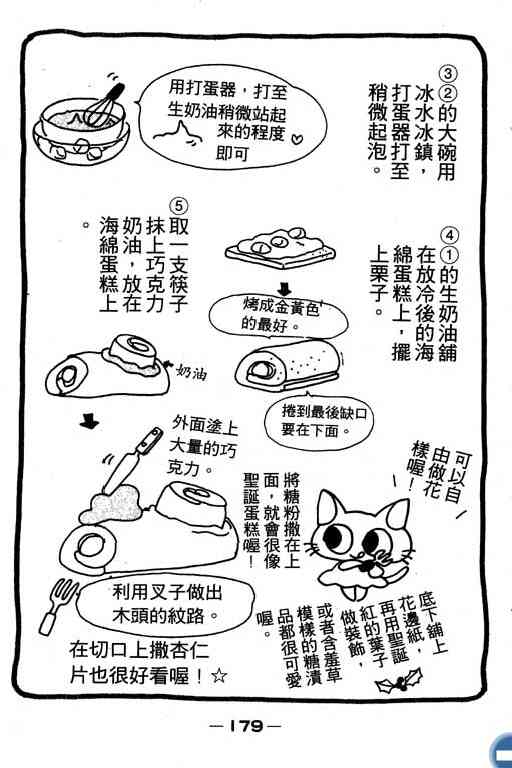 ③②的大碗用
冰水冰鎮，
打蛋器打至
稍微起泡。
用打蛋器，打至
生奶油稍微站起
來的程度
即可
④①的生奶油舖
在放冷後的海
綿蛋糕上，擺
上栗子。
烤成金黃色
的最好。
捲到最後缺口
要在下面。
⑤取一支筷子
抹上巧克力
奶油，放在
海綿蛋糕上
。
奶油
外面塗上
大量的巧
克力。
利用叉子做出
木頭的紋路。
將糖粉撒在上
面，就會很像
聖誕蛋糕喔！
在切口上撒杏仁
片也很好看喔！☆
可以自
由做花
樣喔！
底下舖上
花邊紙，
再用聖誕
紅的葉子
做裝飾，
或者含羞草
模樣的糖漬
品都很可愛
喔。
—179—